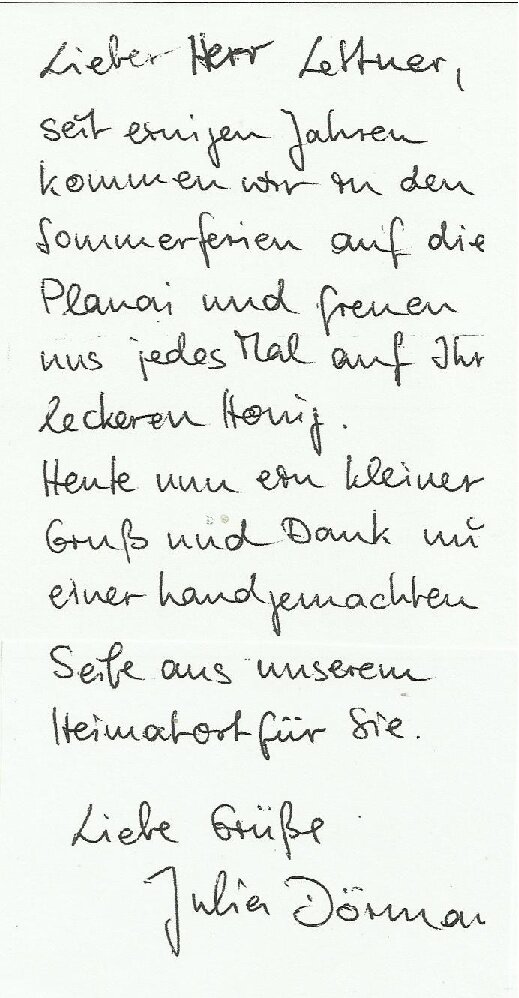 Lieber Herr Lettner,
seit einigen Jahren
kommen wir in den
Sommerferien auf die
Planai und freuen
uns jedes Mal auf Ihr
leckeren Honig.
Heute nun ein kleiner
Gruß und Dank mit
einer handgemachten
Seife aus unserem
Heimatort für Sie.
Liebe Grüße
Julia